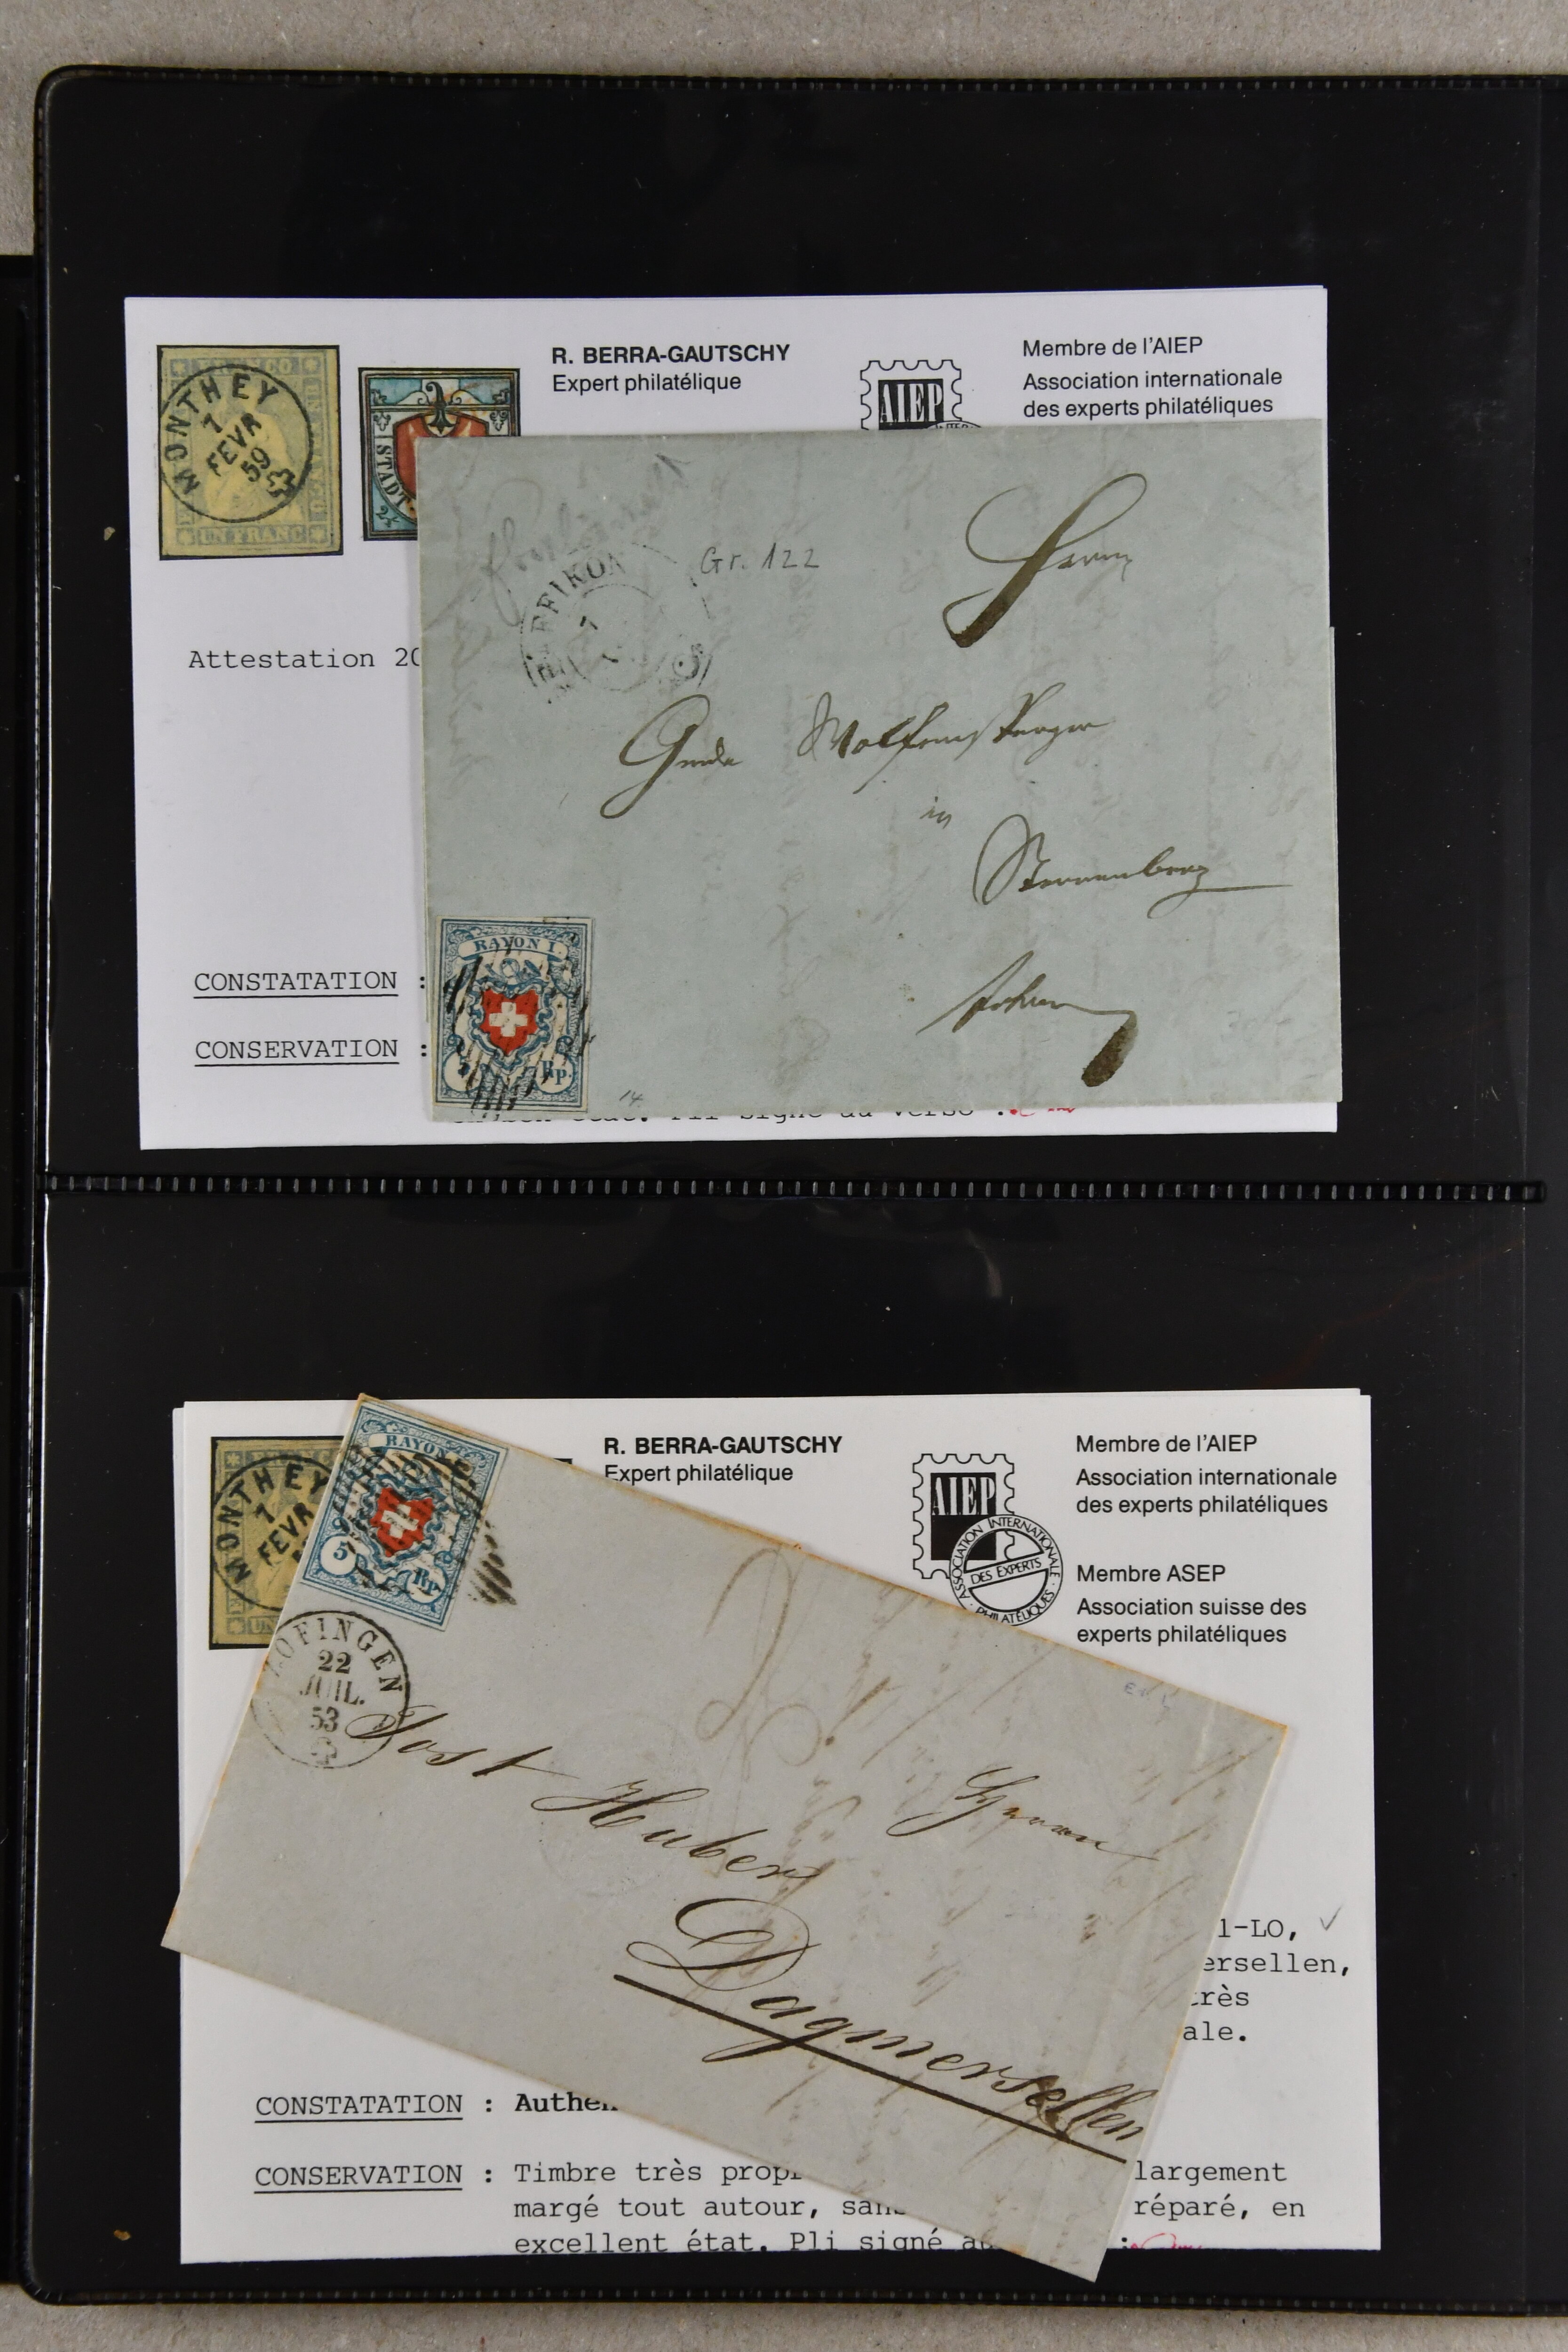 MONTHEY
7
FEVR
59
FRANCO
UN FRANC
STADT
R. BERRA-GAUTSCHY
Expert philatélique
AIEP
Membre de l'AIEP
Association internationale
des experts philatéliques
Attestation 20
FFIKON
7
Gr. 122
Herrn
Wolfensberger
in
Sternenberg
RAYON I.
5 Rp.
14
CONSTATATION :
CONSERVATION :
état. Pli signé au verso :
MONTHEY
7
FEVR
RAYON
5 Rp
R. BERRA-GAUTSCHY
Expert philatélique
AIEP
ASSOCIATION INTERNATIONALE
DES EXPERTS
PHILATÉLIQUES
Membre de l'AIEP
Association internationale
des experts philatéliques
Membre ASEP
Association suisse des
experts philatéliques
ZOFINGEN
22
JUIL.
53
Herrn
Jost Huber
Dagmersellen
1-LO,
ersellen,
très
ale.
CONSTATATION : Authen
CONSERVATION : Timbre très propr largement
margé tout autour, sans réparé, en
excellent état. Pli signé au :